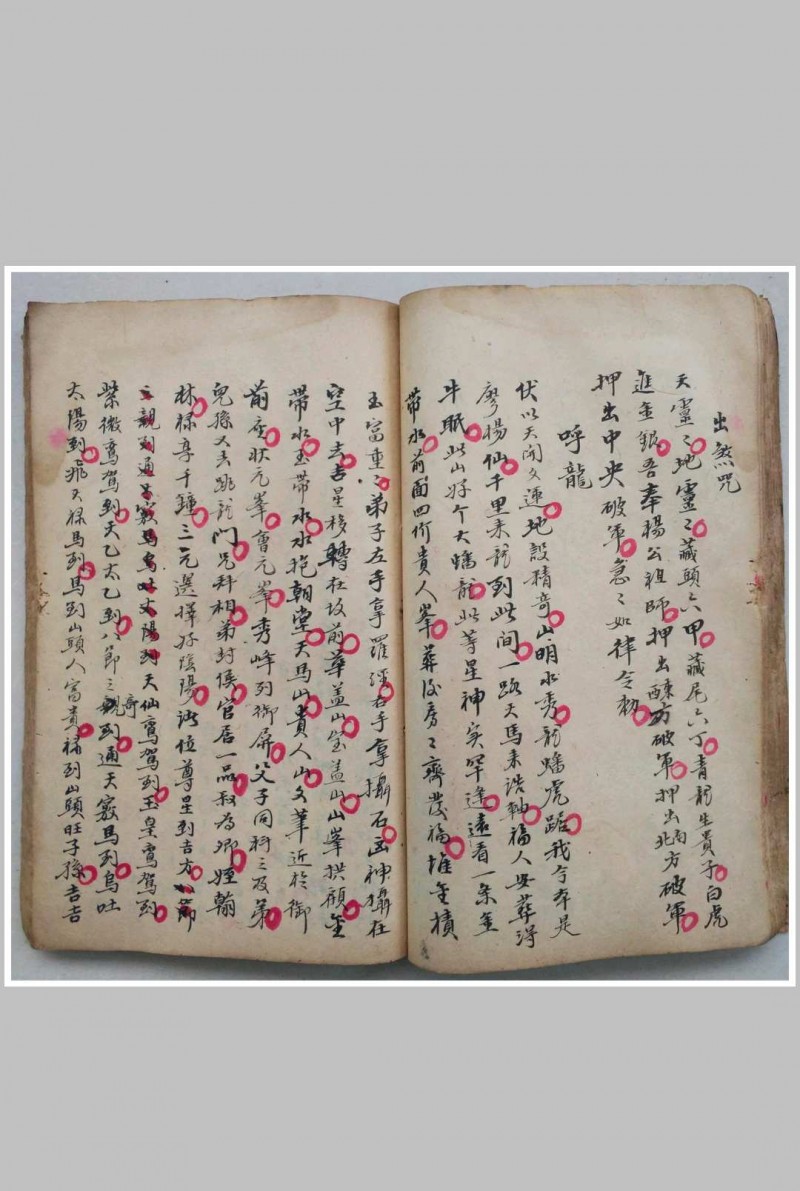 出煞咒
天靈〻地靈〻藏頭六甲藏尾六丁青龍生貴子白虎
進金銀吾奉楊公祖師押出東方破軍押出南北方破軍
押出中央破軍急〻如律令勅
呼龍
伏以天開文運地設積奇山明水秀龍蟠虎踞我今奉是
廖楊仙千里来龍到此间一路天馬来誥軸福人安葬得
牛眠此山好个大蟠龍此等星神实罕逢遠看一条金
帶水前面四价貴人峯葬後房〻齊發福堆金積
玉富重〻弟子左手拿羅經右手拿攝石西神攝在
空中去吉星移轉在坟前華盖山宝盖山山峯拱顧金
帶水玉帶水水抱朝堂天馬山貴人山文筆近於御
前应狀元峯會元峯秀峰列御屏父子同科三及弟
兒孫又去跳龍門兄拜相弟封侯官居一品叔為卿姪翰
林禄享千鍾三元選擇好陰陽諸位尊星到吉方八節
三親到通天竅馬烏吐太陽到天仙鸞駕到玉皇鸞駕到
紫微鸞駕到天乙太乙到八節三親奇到通天竅馬到烏吐
太陽到飛天禄馬到馬到山頭人富貴禄到山頭旺子孫吉吉